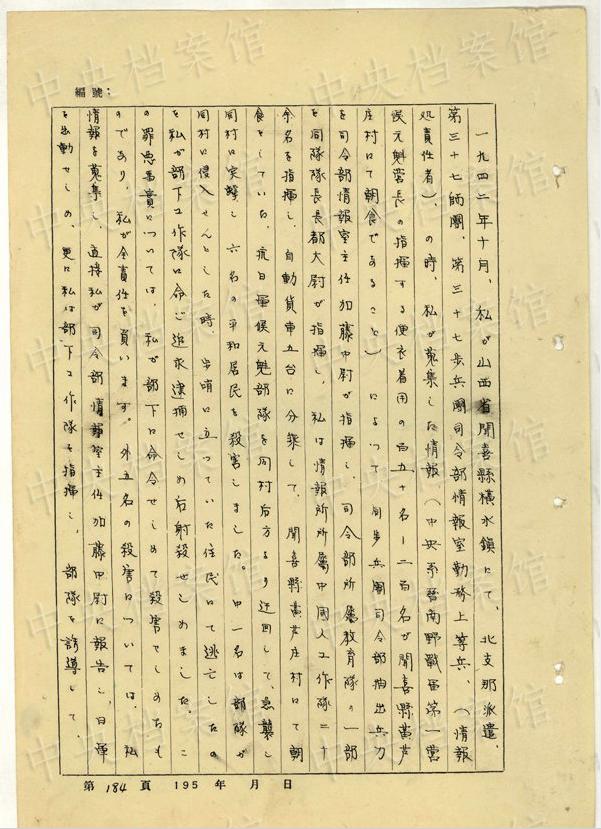 編號：
一九四二年十月、私が山西省聞喜縣横水鎮にて、北支那派遣、
第三十七師團、第三十七歩兵團司令部情報室勤務上等兵、（情報
処責任者）、の時、私が蒐集した情報（中央系晉南野戰軍第一営
侯元魁営長の指揮する便衣着用の百五十名―二百名が聞喜縣黄芦
庄村にて朝食であること）によって同歩兵團司令部抽出兵力
を司令部情報室主任加藤中尉が指揮し、司令部所屬教育隊の一部
を同隊隊長長都大尉が指揮し、私は情報所所屬中國人工作隊二十
余名を指揮し、自動貨車五台に分乗して、聞喜縣黄芦庄村にて朝
食をしている、抗日軍侯元魁部隊を同村后方より迂回して、急襲し
同村に突撃し六名の平和居民を殺害しました。中一名は部隊が
同村に侵入せんとした時、歩哨に立っていた住民にて逃亡したの
を私が部下工作隊に命じ追求逮捕せしめ后射殺せしめました。こ
の罪悪事實については、私が部下に命令せしめて殺害せしめたも
のであり、私が全責任を負います。外五名の殺害については、私
情報を蒐集し、直接私が司令部情報室主任加藤中尉に報告し、日軍
を出動せしめ、更に私は部下工作隊を指揮し、部隊を誘導して、
第184頁 195 年 月 日
中央档案馆